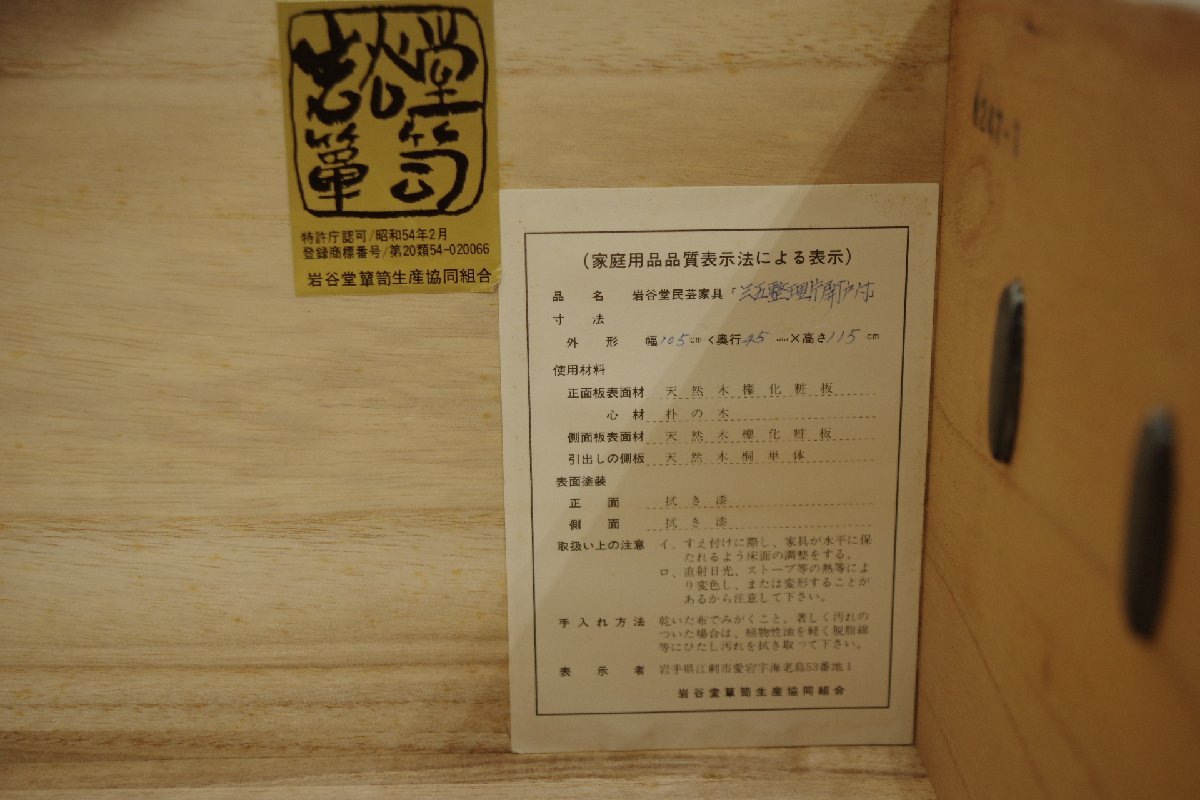 岩谷堂
箪笥
特許庁認可/昭和54年2月
登録商標番号/第20類54-020066
岩谷堂箪笥生産協同組合
(家庭用品品質表示法による表示)
品名 岩谷堂民芸家具「三五整理片開戸付
寸法
外形 幅105cm×奥行45cm×高さ115cm
使用材料
正面板表面材 天然木欅化粧板
心材 朴の木
側面板表面材 天然木欅化粧板
引出しの側板 天然木桐単体
表面塗装
正面 拭き漆
側面 拭き漆
取扱い上の注意 イ、すえ付けに際し、家具が水平に保
たれるよう床面の調整をする。
ロ、直射日光、ストーブ等の熱等によ
り変色し、または変形することが
あるから注意して下さい。
手入れ方法 乾いた布でみがくこと。著しく汚れの
ついた場合は、植物性油を軽く脱脂綿
等にひたし汚れを拭き取って下さい。
表示者 岩手県江刺市愛宕字海老島53番地1
岩谷堂箪笥生産協同組合